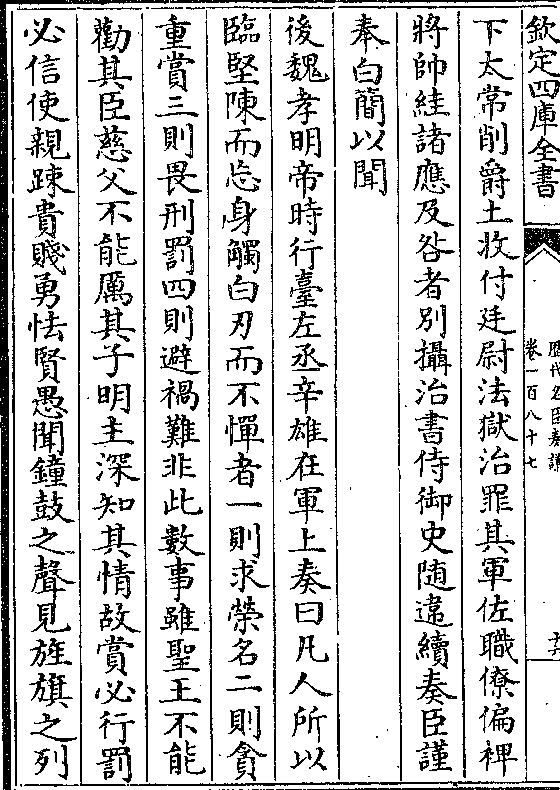 欽定四庫全書
歷代名臣奏議
卷一百八十七
下太常削爵土收付廷尉法獄治罪其軍佐職僚偏裨
將帥絓諸應及咎者別攝治書侍御史随違續奏臣謹
奉白簡以聞
後魏孝明帝時行臺左丞辛雄在軍上奏曰凡人所以
臨堅陳而忘身觸白刃而不憚者一則求榮名二則貪
重賞三則畏刑罰四則避禍難非此數事雖聖王不能
勸其臣慈父不能厲其子明主深知其情故賞必行罰
必信使親踈貴賤勇怯賢愚聞鐘鼓之聲見旌旗之列